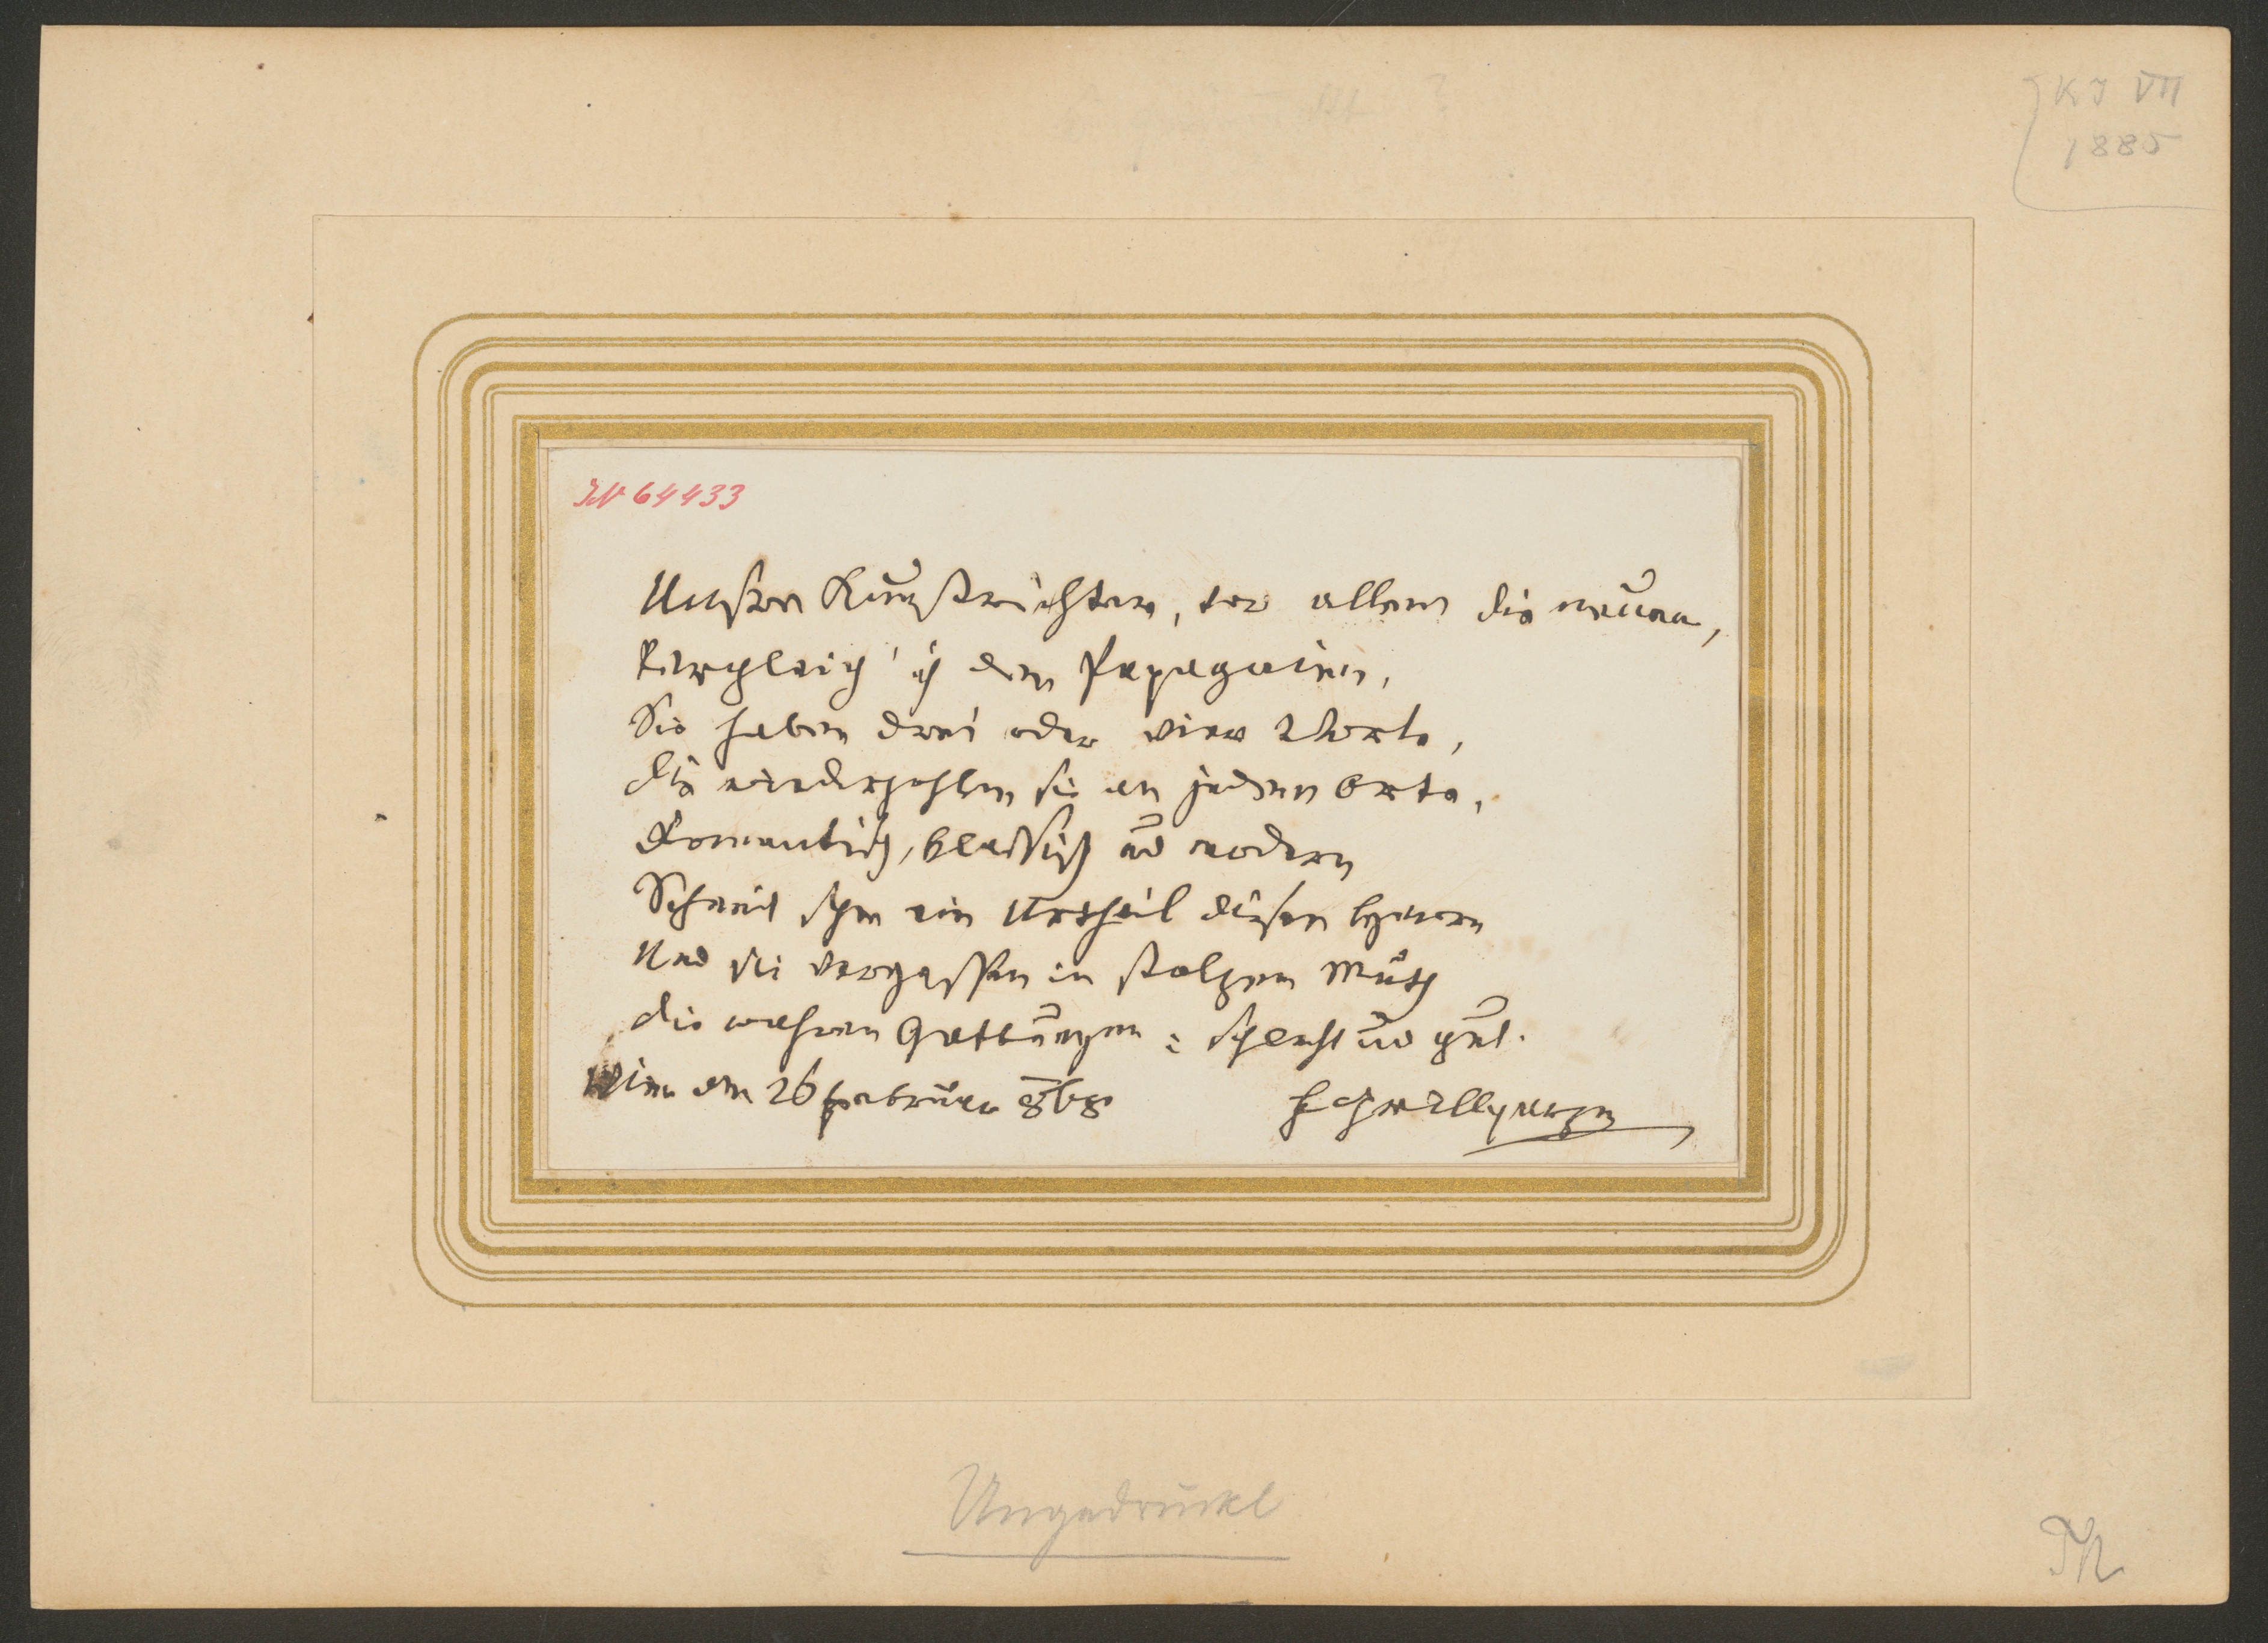 KJ VII
1885
IN 64433
Unsern Kunstrichtern, vor allem die neuen,
Vergleich' ich den Papageien,
Sie haben drei oder vier Worte,
Die wiederhohlen sie an jedem Orte,
Romantisch, klassisch und modern
Scheint schon ein Urtheil diesen Herrn
Und sie vergessen in stolzem Muth
Die wahren Gattungen: schlecht und gut.
Wien den 26 Februar 868
Grillparzer
Ungedruckt